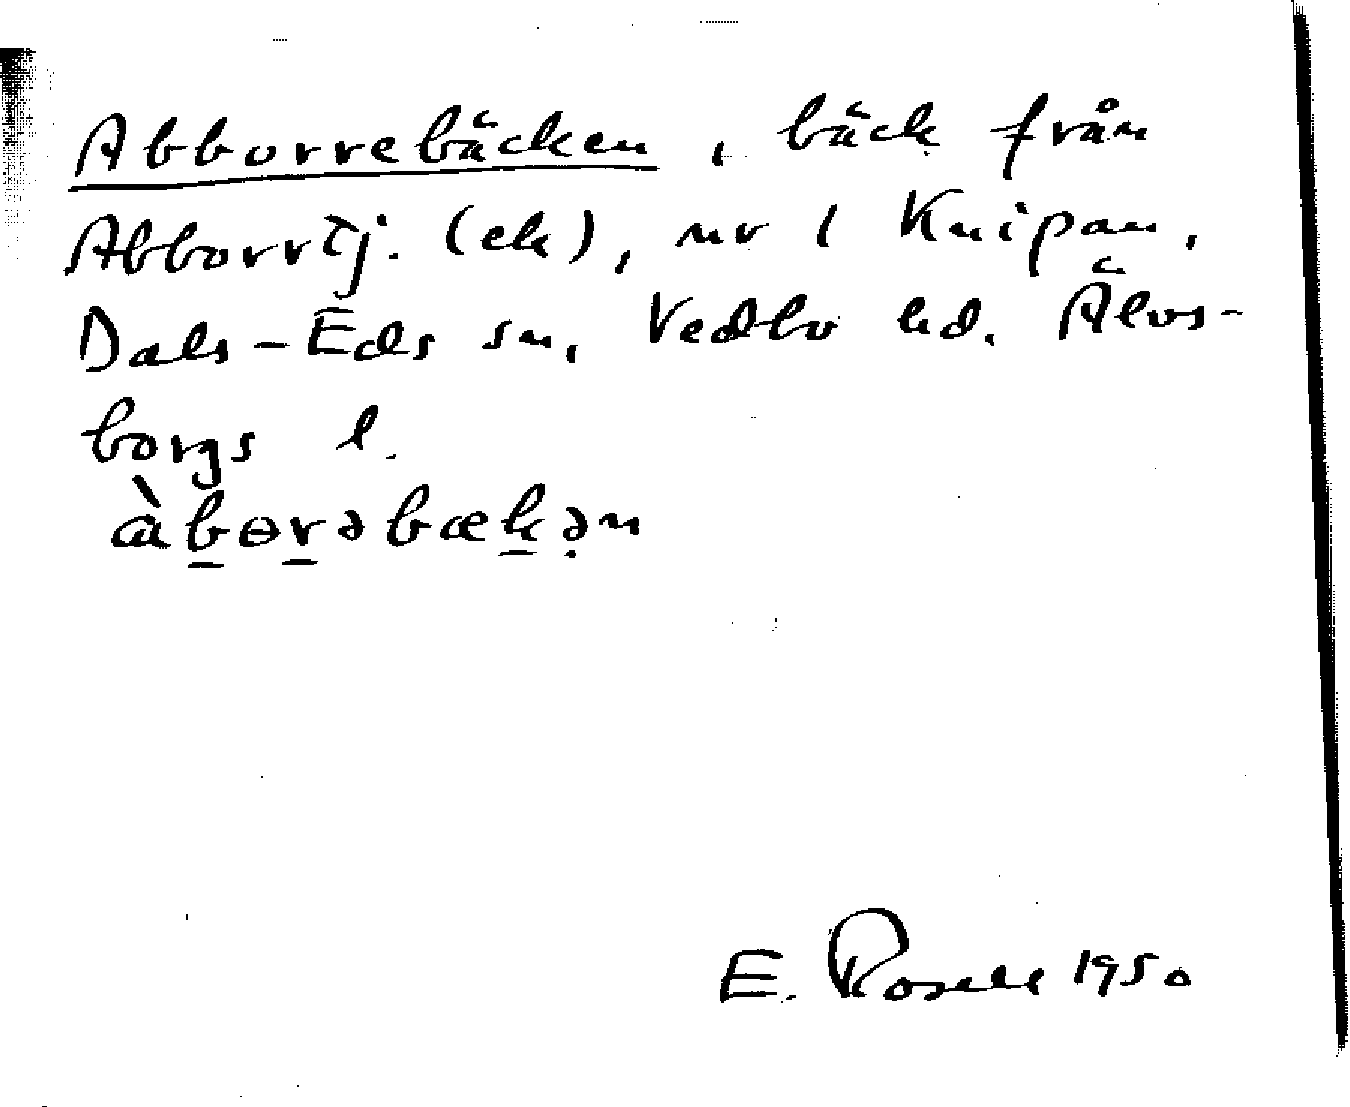 Abborrebäcken, bäck från
Abborrtj. (ek), nr 1 Knipan,
Dals-Eds sn, Vedbo hd. Älvs-
borgs l.
àb̲ɵr̲əbæk̲ə̣n
E. Rosell 1950